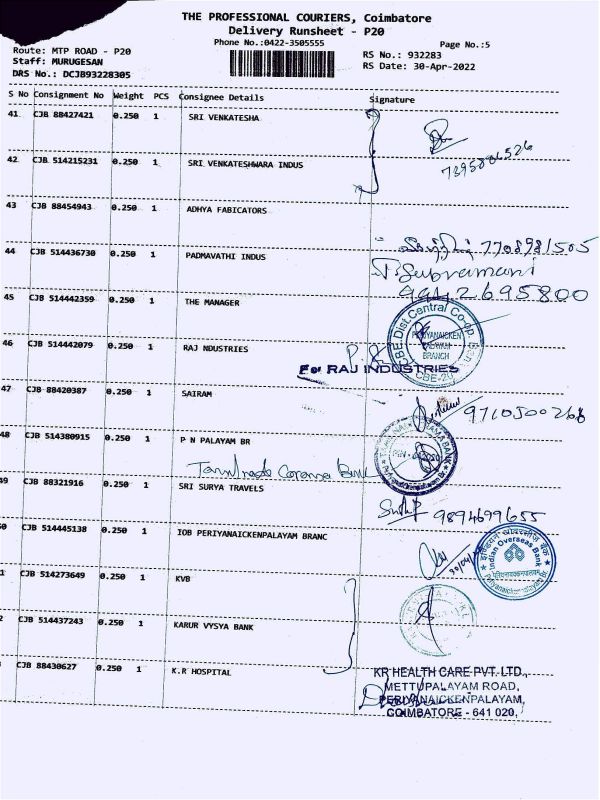 THE PROFESSIONAL COURIERS, Coimbatore
Delivery Runsheet - P20
Phone No.:0422-3505555
Page No.:5
Route: MTP ROAD - P20
RS No.: 932283
Staff: MURUGESAN
RS Date: 30-Apr-2022
DRS No.: DCJB93228305
S No Consignment No Weight PCS Consignee Details Signature
41 CJB 88427421 0.250 1 SRI VENKATESHA
7395886526
42 CJB 514215231 0.250 1 SRI VENKATESHWARA INDUS
43 CJB 88454943 0.250 1 ADHYA FABICATORS
7708981505
44 CJB 514436730 0.250 1 PADMAVATHI INDUS
P. Subramani
9942695800
45 CJB 514442359 0.250 1 THE MANAGER
CBE. Dist. Central Co-op. Bank
PERIYANAICKEN
BRANCH
46 CJB 514442079 0.250 1 RAJ NDUSTRIES
For RAJ INDUSTRIES
47 CJB 88420387 0.250 1 SAIRAM
48 CJB 514380915 0.250 1 P N PALAYAM BR
Tamilnadu Grama Bank
49 CJB 88321916 0.250 1 SRI SURYA TRAVELS
9894699655
0 CJB 514445138 0.250 1 IOB PERIYANAICKENPALAYAM BRANC
इण्डियन ओवरसीज़ बैंक
Indian Overseas Bank
1 CJB 514273649 0.250 1 KVB
2 CJB 514437243 0.250 1 KARUR VYSYA BANK
CJB 88430627 0.250 1 K.R HOSPITAL
KR HEALTH CARE PVT. LTD.,
METTUPALAYAM ROAD,
PERIYANAICKENPALAYAM,
COIMBATORE - 641 020,